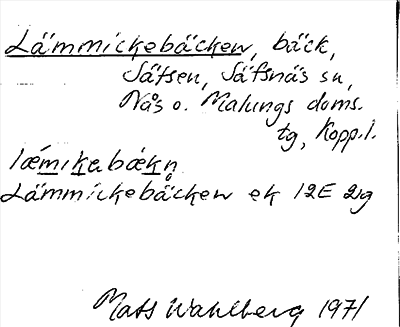 Lämmickebäcken, bäck,
Säfsen, Säfsnäs sn,
Nås o. Malungs doms.
tg, Kopp.l.
lǽmikabækn̥
Lämmickebäcken ek 12E 2ig
Mats Wahlberg 1971